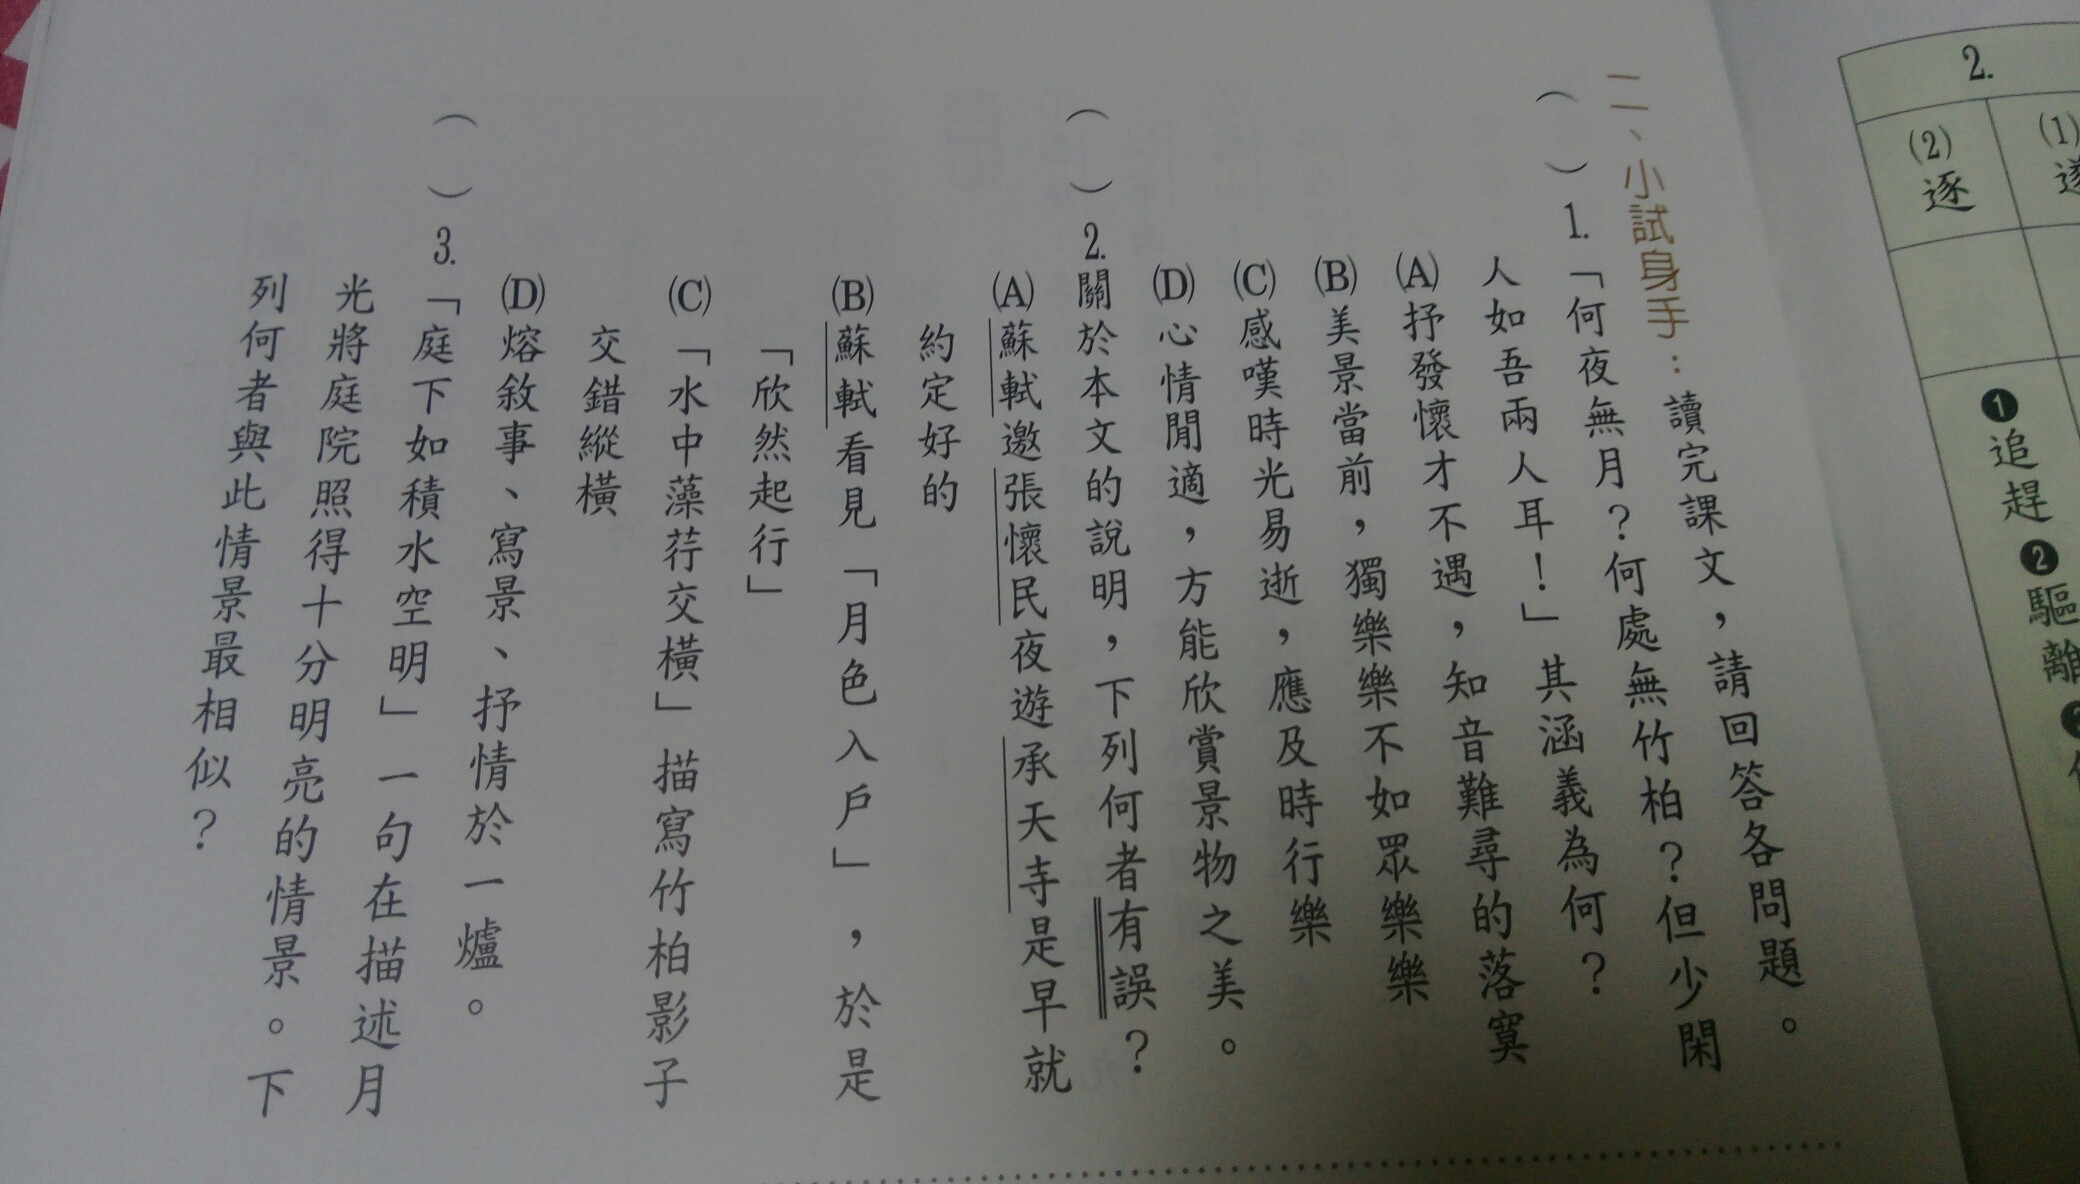 2.
(1)
(2)逐
❶追趕❷驅離
二、小試身手：讀完課文，請回答各問題。
（　）1.「何夜無月？何處無竹柏？但少閑
人如吾兩人耳！」其涵義為何？
(A)抒發懷才不遇，知音難尋的落寞
(B)美景當前，獨樂樂不如眾樂樂
(C)感嘆時光易逝，應及時行樂
(D)心情閒適，方能欣賞景物之美。
（　）2.關於本文的說明，下列何者有誤？
(A)蘇軾邀張懷民夜遊承天寺是早就
約定好的
(B)蘇軾看見「月色入戶」，於是
「欣然起行」
(C)「水中藻荇交橫」描寫竹柏影子
交錯縱橫
(D)熔敘事、寫景、抒情於一爐。
（　）3.「庭下如積水空明」一句在描述月
光將庭院照得十分明亮的情景。下
列何者與此情景最相似？